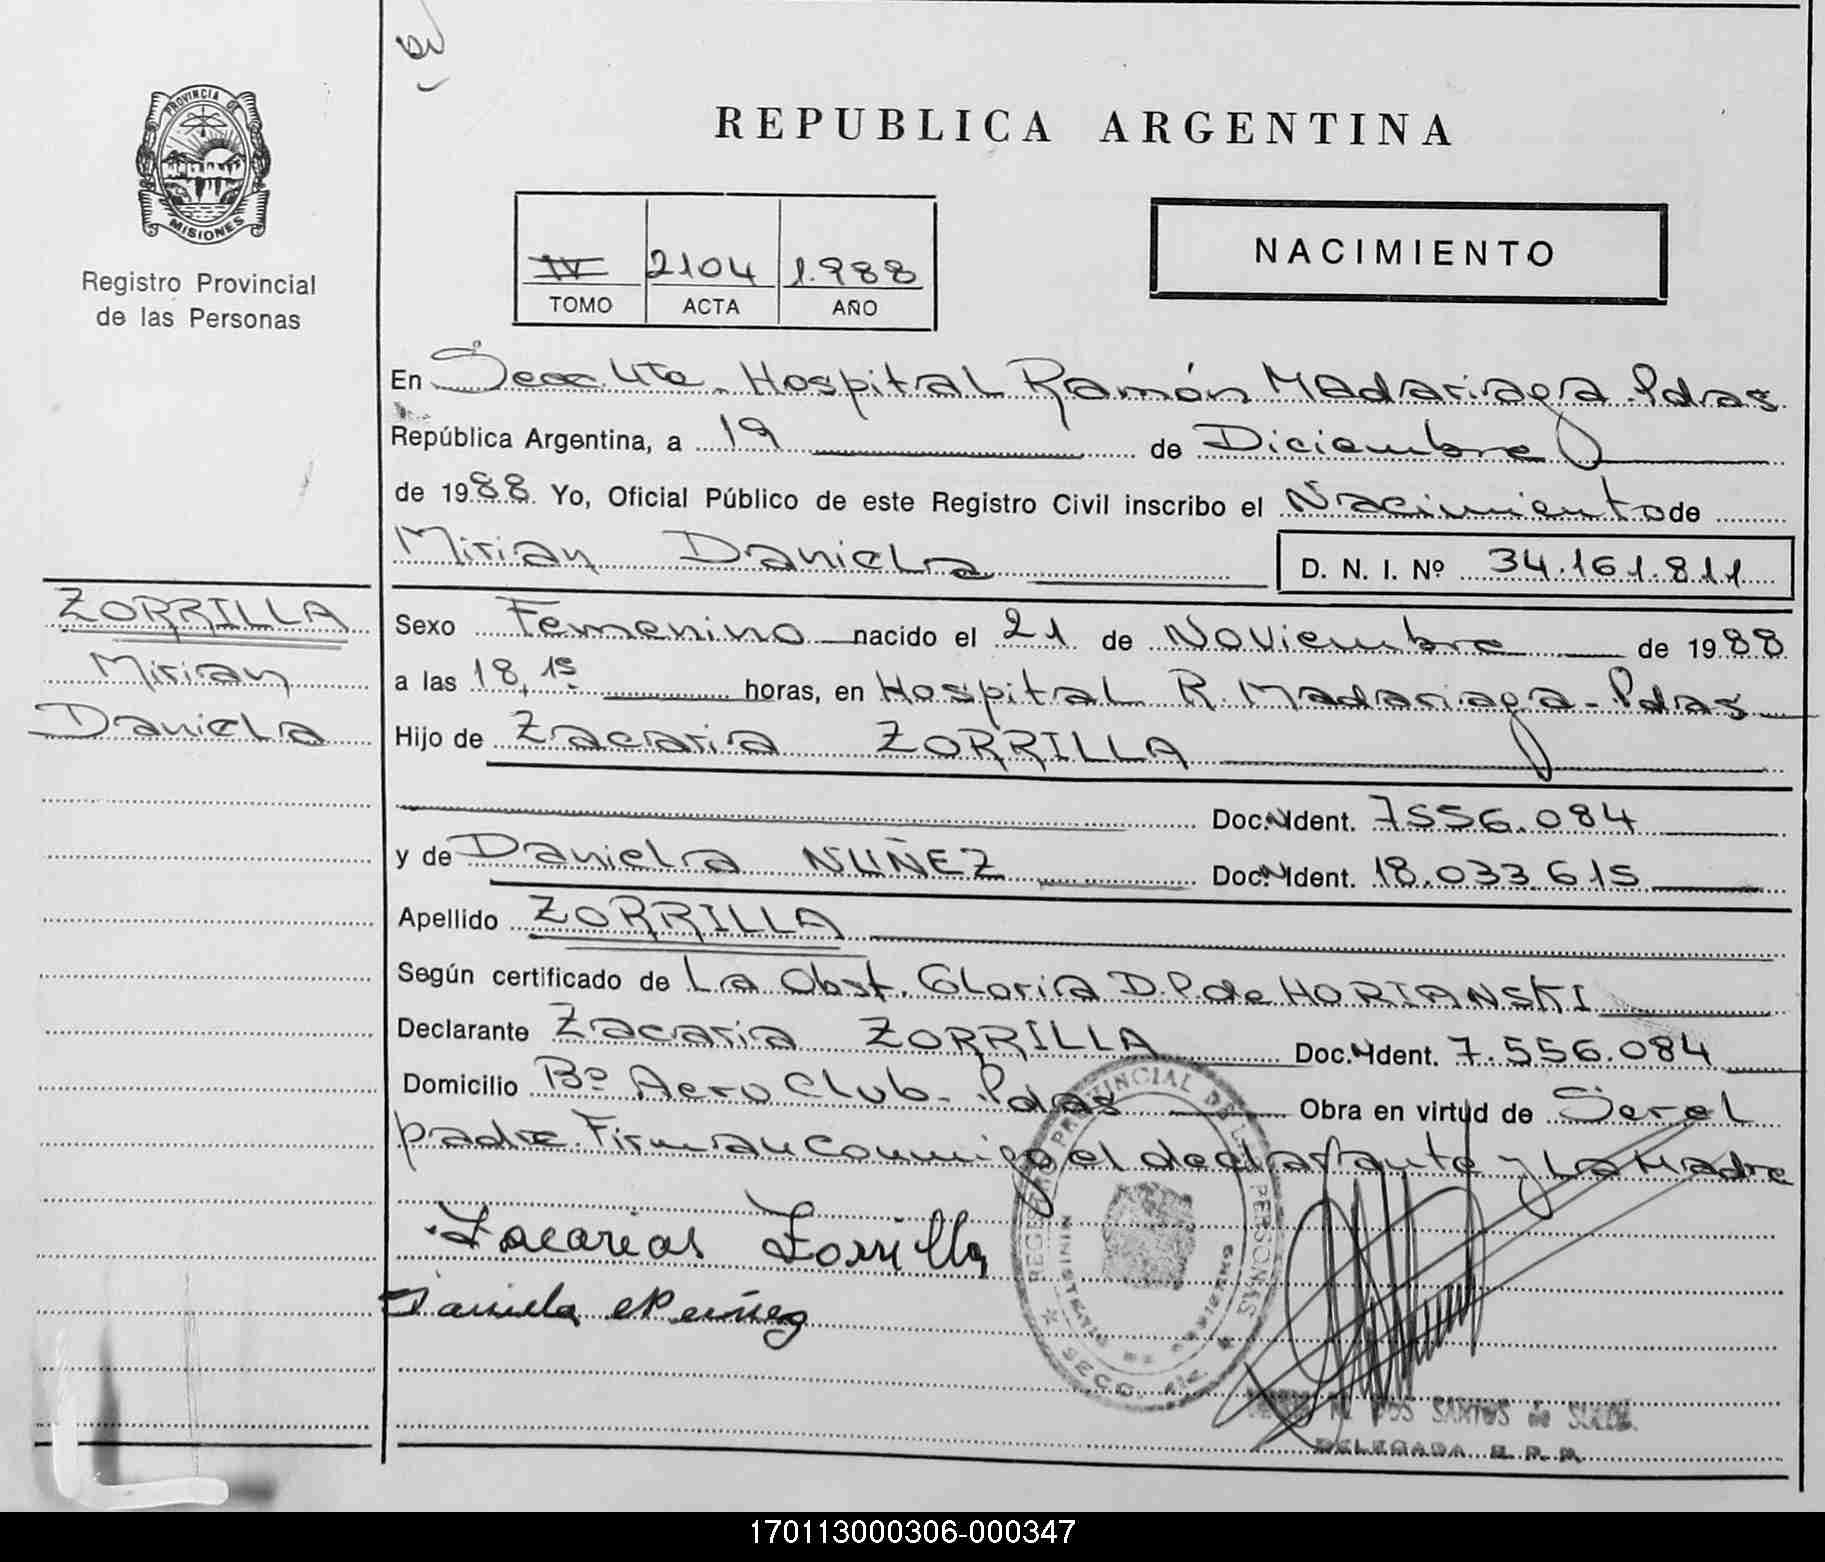 REPUBLICA ARGENTINA
PROVINCIA DE
MISIONES
Registro Provincial
de las Personas
NACIMIENTO
IV 2104 1.988
TOMO ACTA AÑO
En Secc. 4ta. Hospital Ramón Madariaga. Pdas
República Argentina, a 19 de Diciembre
de 1988 Yo, Oficial Público de este Registro Civil inscribo el Nacimiento de
Mirian Daniela D. N. I. Nº 34.161.811
ZORRILLA
Mirian
Daniela
Sexo Femenino nacido el 21 de Noviembre de 1988
a las 18,15 horas, en Hospital R. Madariaga - Pdas
Hijo de Zacaria ZORRILLA
Doc. Ident. 7556.084
y de Daniela NUÑEZ Doc. Ident. 18.033.615
Apellido ZORRILLA
Según certificado de La Obst. Gloria D.P. de HORIANSKI
Declarante Zacaria ZORRILLA Doc. Ident. 7.556.084
Domicilio Bº Aero Club - Pdas Obra en virtud de Ser el
padre. Firman conmigo el declarante y La Madre
Zacarias Zorrilla
Daniela Nuñez
REGISTRO PROVINCIAL DE LAS PERSONAS
SECC. 4ta.
M. DOS SANTOS de
DELEGADA R. P. P.
170113000306-000347